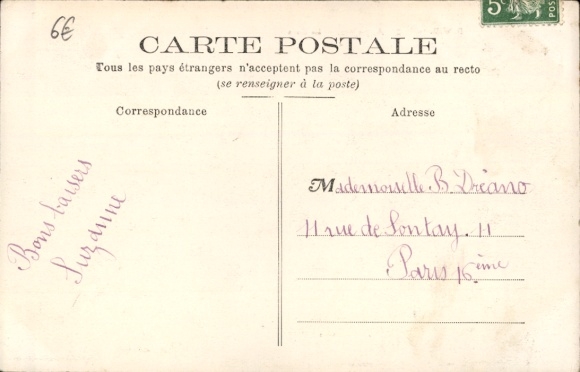 6€
5c
CARTE POSTALE
Tous les pays étrangers n'acceptent pas la correspondance au recto
(se renseigner à la poste)
Correspondance
Adresse
Bons baisers
Suzanne
Mademoiselle B. Dréano
11 rue de Lontay. 11
Paris 16.ème